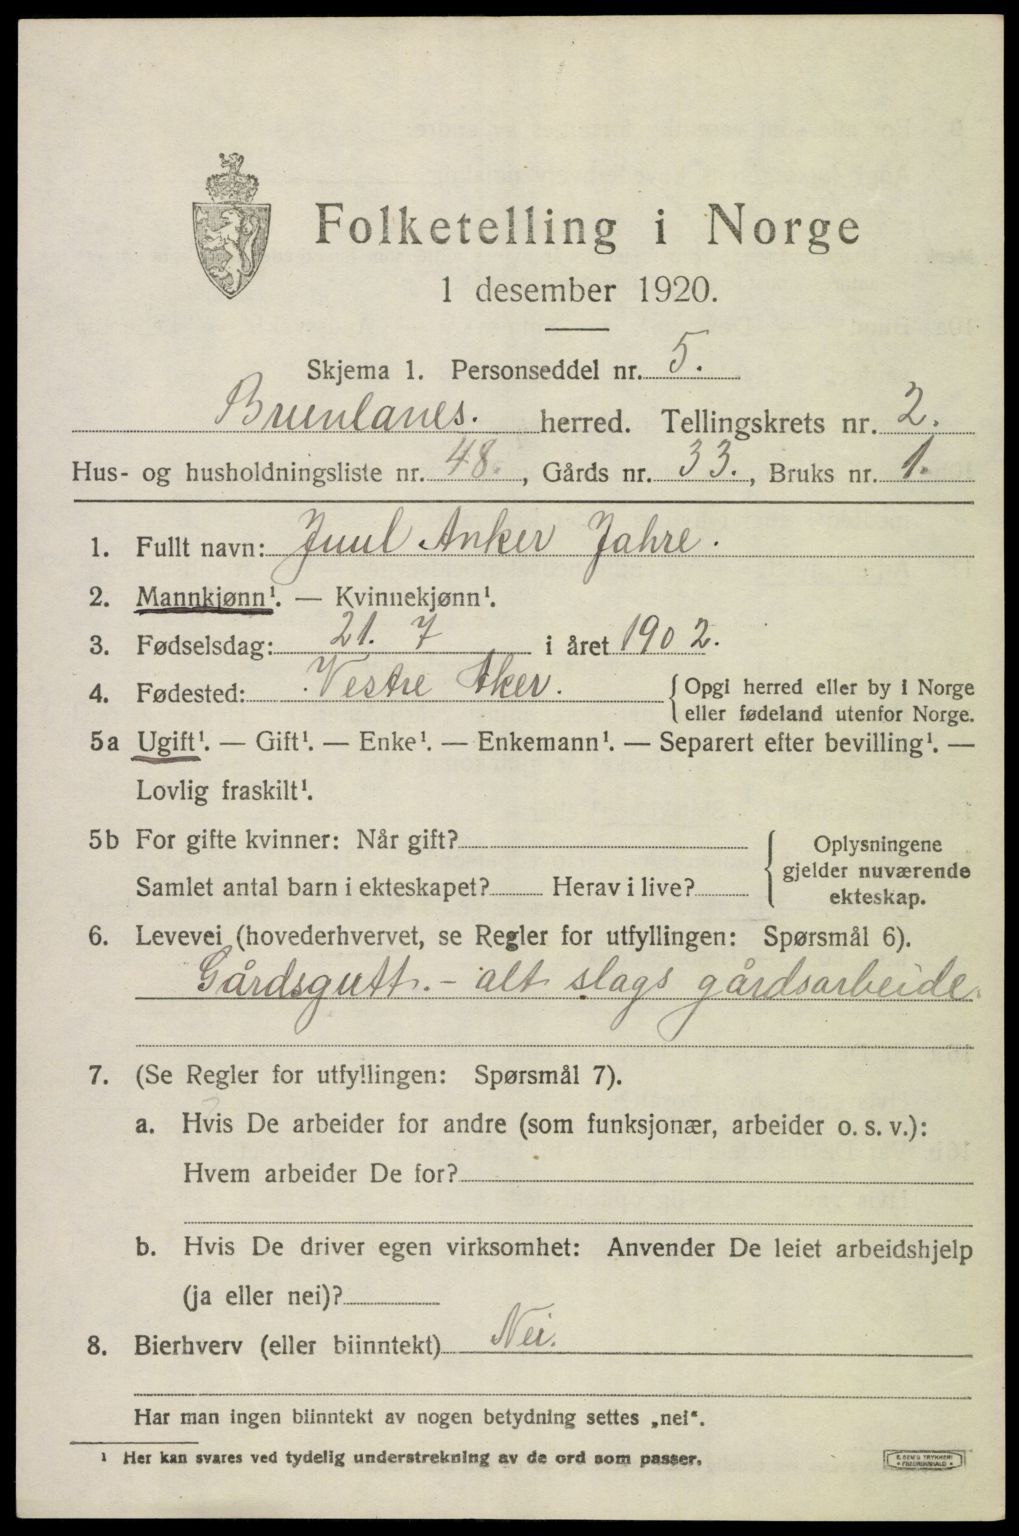 Folketelling i Norge
1 desember 1920.
Skjema 1. Personseddel nr. 5.
Brunlanes. herred. Tellingskrets nr. 2.
Hus- og husholdningsliste nr. 48., Gårds nr. 33., Bruks nr. 1.
1. Fullt navn: Juul Anker Jahre.
2. Mannkjønn¹. — Kvinnekjønn¹.
3. Fødselsdag: 21. 7 i året 1902.
4. Fødested: Vestre Aker. Opgi herred eller by i Norge
eller fødeland utenfor Norge.
5a Ugift¹. — Gift¹. — Enke¹. — Enkemann¹. — Separert efter bevilling¹. —
Lovlig fraskilt¹.
5b For gifte kvinner: Når gift? Oplysningene
gjelder nuværende
Samlet antal barn i ekteskapet? Herav i live? ekteskap.
6. Levevei (hovederhvervet, se Regler for utfyllingen: Spørsmål 6).
Gårdsgutt. - alt slags gårdsarbeide.
7. (Se Regler for utfyllingen: Spørsmål 7).
a. Hvis De arbeider for andre (som funksjonær, arbeider o. s. v.):
Hvem arbeider De for?
b. Hvis De driver egen virksomhet: Anvender De leiet arbeidshjelp
(ja eller nei)?
8. Bierhverv (eller biinntekt) Nei.
Har man ingen biinntekt av nogen betydning settes „nei“.
¹ Her kan svares ved tydelig understrekning av de ord som passer.